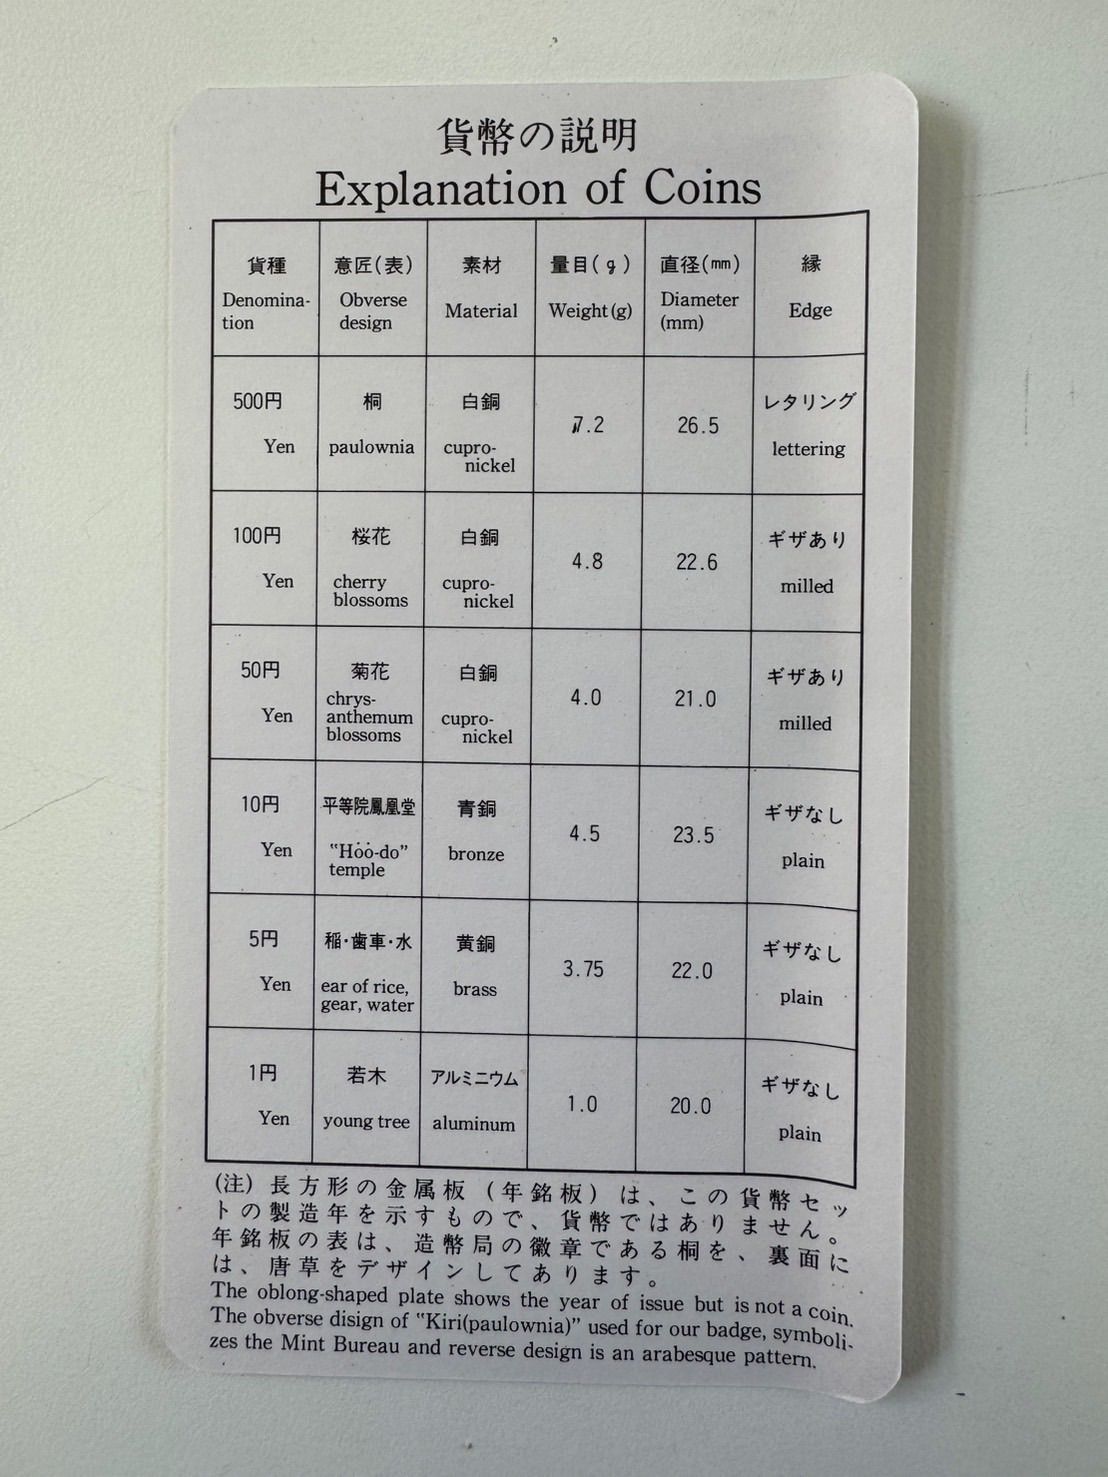 貨幣の説明
Explanation of Coins
貨種 意匠(表) 素材 量目(g) 直径(mm) 縁
Denomina-tion Obverse design Material Weight(g) Diameter (mm) Edge
500円 桐 白銅 7.2 26.5 レタリング
Yen paulownia cupro-nickel lettering
100円 桜花 白銅 4.8 22.6 ギザあり
Yen cherry blossoms cupro-nickel milled
50円 菊花 白銅 4.0 21.0 ギザあり
Yen chrys-anthemum blossoms cupro-nickel milled
10円 平等院鳳凰堂 青銅 4.5 23.5 ギザなし
Yen "Hȯȯ-do" temple bronze plain
5円 稲・歯車・水 黄銅 3.75 22.0 ギザなし
Yen ear of rice, gear, water brass plain
1円 若木 アルミニウム 1.0 20.0 ギザなし
Yen young tree aluminum plain
(注) 長方形の金属板(年銘板)は、この貨幣セッ
トの製造年を示すもので、貨幣ではありません。
年銘板の表は、造幣局の徽章である桐を、裏面に
は、唐草をデザインしてあります。
The oblong-shaped plate shows the year of issue but is not a coin.
The obverse disign of "Kiri(paulownia)" used for our badge, symboli-
zes the Mint Bureau and reverse design is an arabesque pattern.